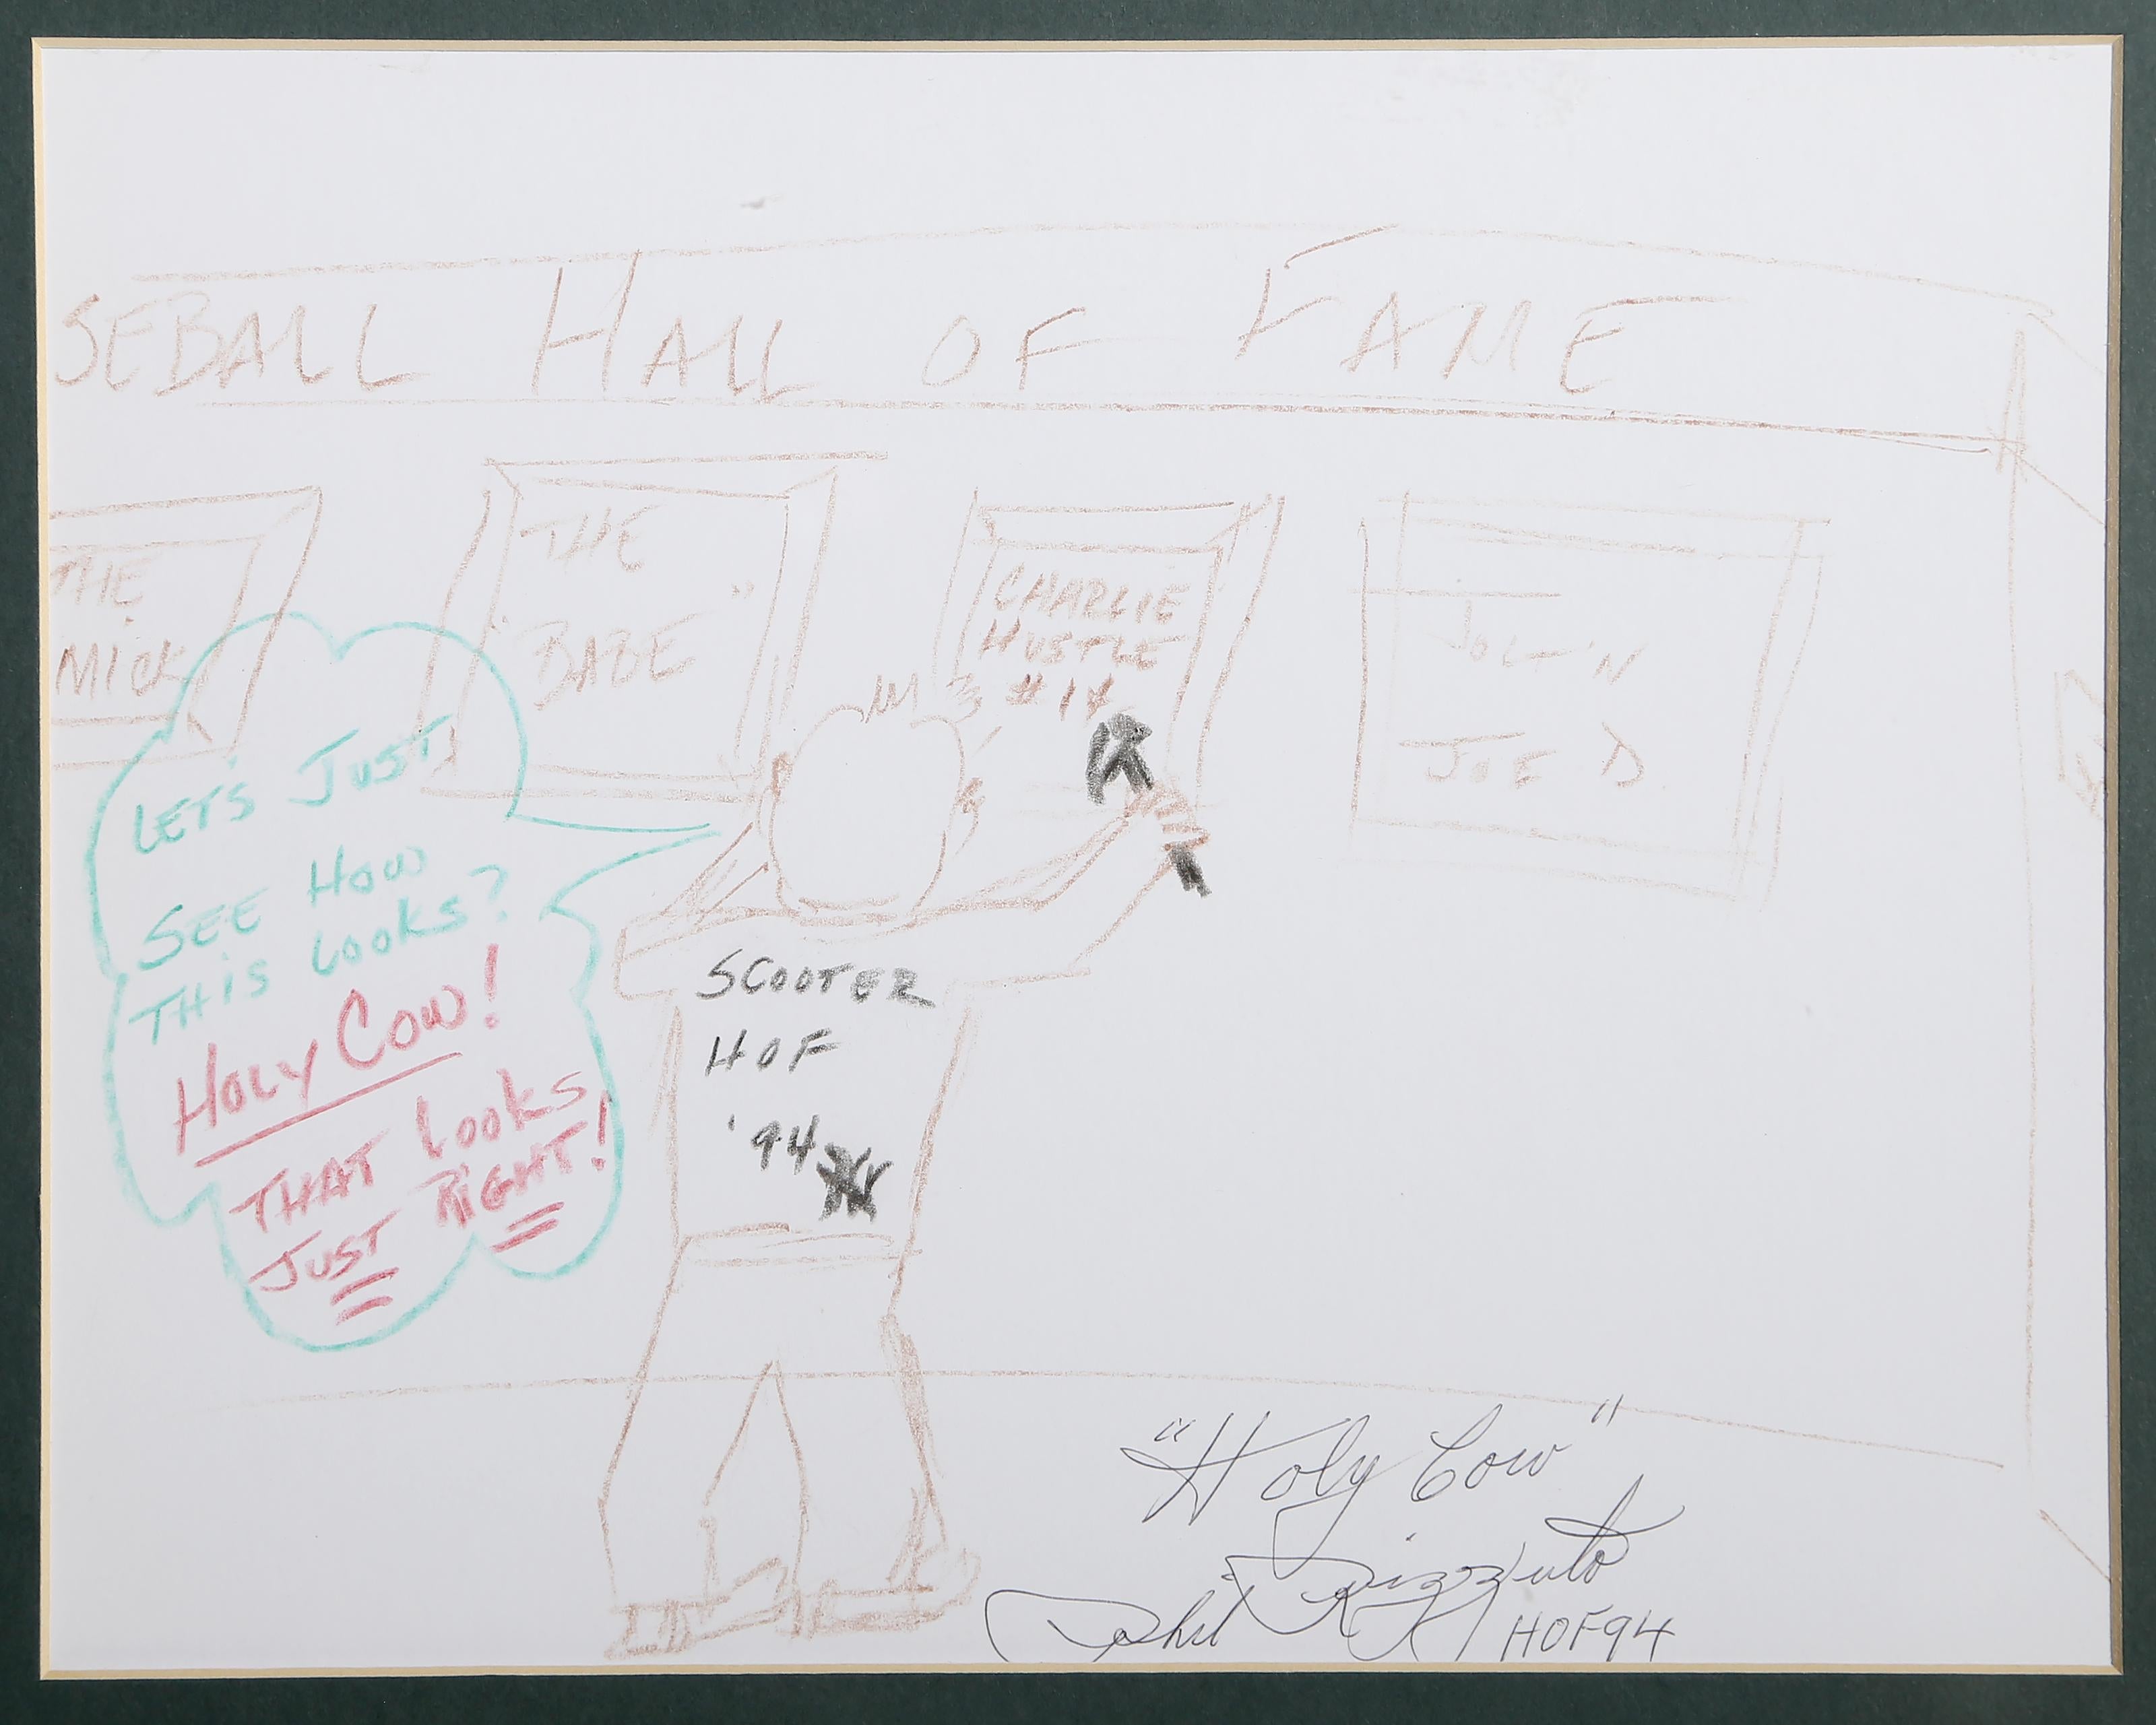 SEBALL HALL OF FAME
THE
MICK
THE
BABE"
CHARLIE
HUSTLE
#14
JOLT'N
JOE D.
LET'S JUST
SEE HOW
THIS LOOKS?
HOLY COW!
THAT LOOKS
JUST RIGHT!
SCOOTER
HOF
'94
"Holy Cow"
Phil Rizzuto
HOF94